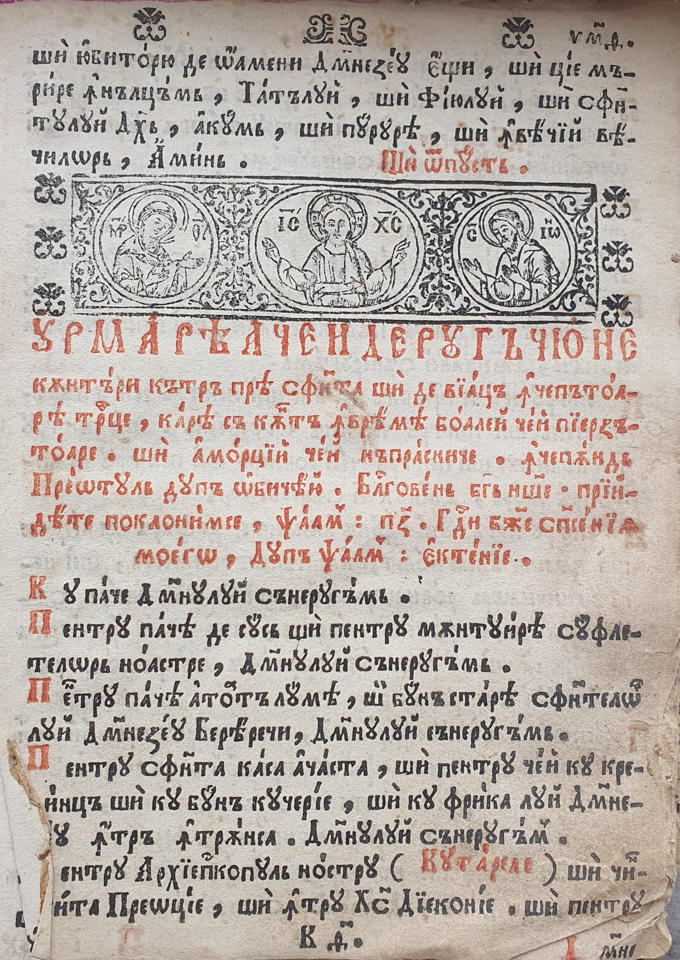 ши ю҆бито́рю де ѡ҆́амени Дм҃незе́ѹ є҆́щи , ши ціе мъ-
ри́ре ꙟ҆нълцъмь , Та́тълуй , ши Фі́юлуй , ши сфн҃-
тулуй Дх҃ь , а҆кумь , ши пу́рурѣ , ши ꙟ҆вѣ́чїй вѣ-
чилѡрь , А҆ми́нь . Шѝ ѿпустъ .
МР ѲУ І҃С Х҃С С҃ І҆Ѡ
УРМА́РѢ А ЧЕИ ДЕ РУГЪЧЮ́НЕ
кѫнтъ́ри кътръ прѣ сфн҃та ши де вїацъ ꙟ҆чепъто́а-
рѣ трⷪ҇це , ка́рѣ съ кѫ́нтъ ꙟ҆врѣ́мѣ бо́алей че́й пїерзъ-
то́аре . ши а҆мо́рцїй че́й нъпра́сниче . ꙟ҆чепѫ́ндь
Пре́ѡтуль дупъ ѡ҆биче́ю . Бл҃гове́нь бг҃ъ нш҃ь . прїи-
дѣ́те поклони́мсѧ , Ѱало́м : пз҃ . Гд҇и бж҃е сп҃се́нїѧ
моегѡ̀ , Дупъ Ѱало́м : Єктенїе .
Ку па́че Дм҃нулуй сънеруѓъмь .
Пентру па́чѣ де су́сь ши пентру мѫнтуи́рѣ су́фле-
телѡрь но́астре , Дм҃нулуй сънеруѓъмь .
Пе́нтру па́чѣ а҆то́тъ лу́мѣ , ши бу́нъ ста́рѣ сфн҃телѡр
луй Дм҃незе́ѹ Бесѣ́речи, Дм҃нулуй сънеруѓъмь .
Пентру сфн҃та ка́са а҆ча́ста , ши пентру че́й ку кре-
инцъ ши ку бу́нъ кучері́е , ши ку фри́ка луй Дм҃не-
ꙟ҆тръ ꙟ҆трѫ́нса . Дм҃нулуй сънеруѓъм .
ентру Архїепи́скопуль но́стру ( Кута́реле ) ши чи́н-
Преѡцїе , ши ꙟ҆тру Хс҃ Дїеконіе . ши пентру
К д҃ .